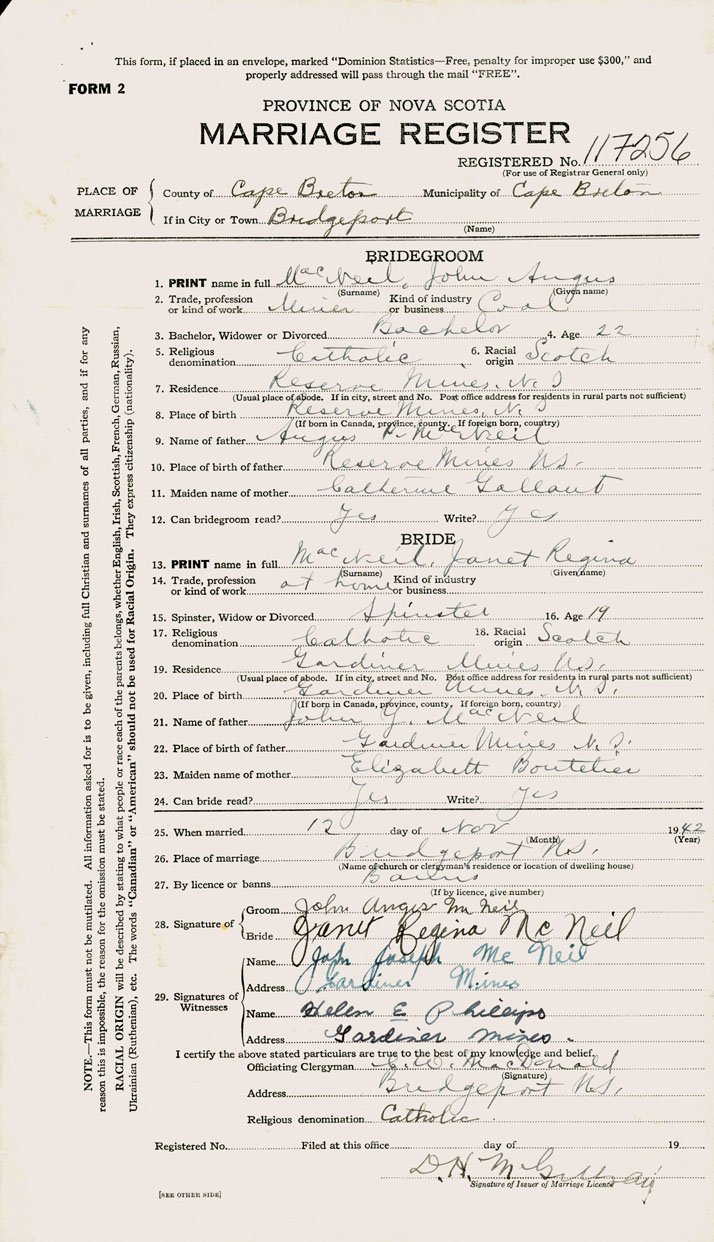 This form, if placed in an envelope, marked "Dominion Statistics—Free, penalty for improper use $300," and
properly addressed will pass through the mail "FREE".
FORM 2
PROVINCE OF NOVA SCOTIA
MARRIAGE REGISTER
REGISTERED No. 117256
(For use of Registrar General only)
PLACE OF MARRIAGE
County of Cape Breton Municipality of Cape Breton
If in City or Town Bridgeport
(Name)
BRIDEGROOM
1. PRINT name in full MacNeil, John Angus
(Surname) (Given name)
2. Trade, profession or kind of work Miner Kind of industry or business Coal
3. Bachelor, Widower or Divorced Bachelor 4. Age 22
5. Religious denomination Catholic 6. Racial origin Scotch
7. Residence Reserve Mines, N.S
(Usual place of abode. If in city, street and No. Post office address for residents in rural parts not sufficient)
8. Place of birth Reserve Mines, N.S
(If born in Canada, province, county. If foreign born, country)
9. Name of father Angus P. MacNeil
10. Place of birth of father Reserve Mines NS.
11. Maiden name of mother Catherine Gallant
12. Can bridegroom read? Yes Write? Yes
BRIDE
13. PRINT name in full MacNeil, Janet Regina
(Surname) (Given name)
14. Trade, profession or kind of work at home Kind of industry or business
15. Spinster, Widow or Divorced Spinster 16. Age 19
17. Religious denomination Catholic 18. Racial origin Scotch
19. Residence Gardiner Mines N.S.
(Usual place of abode. If in city, street and No. Post office address for residents in rural parts not sufficient)
20. Place of birth Gardiner Mines, N.S.
(If born in Canada, province, county. If foreign born, country)
21. Name of father John Y. MacNeil
22. Place of birth of father Gardiner Mines N.S.
23. Maiden name of mother Elizabett Boutelier
24. Can bride read? Yes Write? Yes
25. When married 12 day of Nov 1942
(Month) (Year)
26. Place of marriage Bridgeport N.S.
(Name of church or clergyman's residence or location of dwelling house)
27. By licence or banns Banns
(If by licence, give number)
28. Signature of
Groom John Angus Mc Neil
Bride Janet Regina Mc Neil
29. Signatures of Witnesses
Name John Joseph Mc Neil
Address Gardiner Mines
Name Helen E Phillips
Address Gardiner Mines.
I certify the above stated particulars are true to the best of my knowledge and belief.
Officiating Clergyman MacDonald
(Signature)
Address Bridgeport N.S.
Religious denomination Catholic.
Registered No. Filed at this office day of 19
D.H.
Signature of Issuer of Marriage Licence
[SEE OTHER SIDE]
NOTE.—This form must not be mutilated. All information asked for is to be given, including full Christian and surnames of all parties, and if for any
reason this is impossible, the reason for the omission must be stated.
RACIAL ORIGIN will be described by stating to what people or race each of the parents belongs, whether English, Irish, Scottish, French, German, Russian,
Ukrainian (Ruthenian), etc. The words "Canadian" or "American" should not be used for Racial Origin. They express citizenship (nationality).